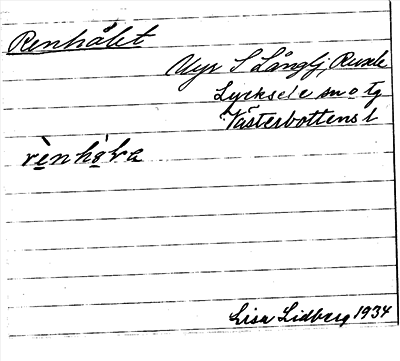 Renhålet
Myr S Långtj, Rusele
Lycksele sn o tg
Västerbottens l
rènhó̱ḷa
Lisa Lidberg 1934